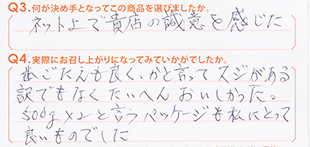 Q3.何が決め手となってこの商品を選びましたか。
ネット上で貴店の誠意を感じた
Q4.実際にお召し上がりになってみていかがでしたか。
歯ごたえも良く、かと言ってスジがある
訳でもなくたいへんおいしかった。
500g×2と言うパッケージも私にとって
良いものでした